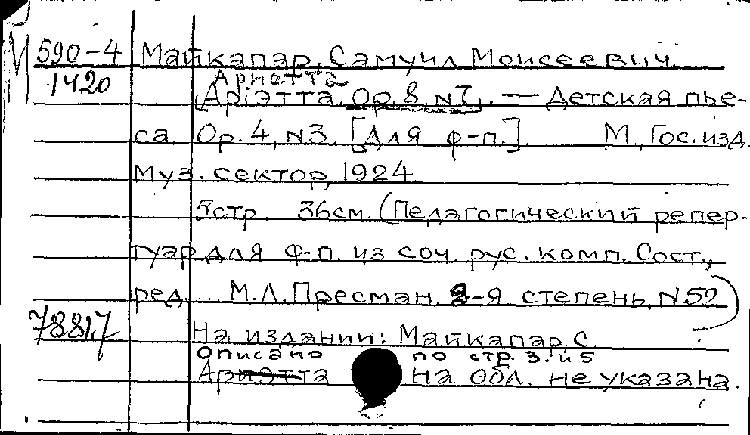 М 590-4 Майкапар, Самуил Моисеевич.
1420 Ариэтта
Аріэтта. Ор.8 №7. — Детская пье-
са. Ор. 4, №3. [Для ф-п.] М., Гос. изд.
Муз. сектор, 1924.
5 стр. 36 см. (Педагогический репер-
туар для ф-п. из соч. рус. комп. Сост.,
ред. М.Л. Пресман. 2-я степень, №52)
78817 На издании: Майкапар С.
Описано по стр. 3 и 5
Ариэтта на обл. не указана.